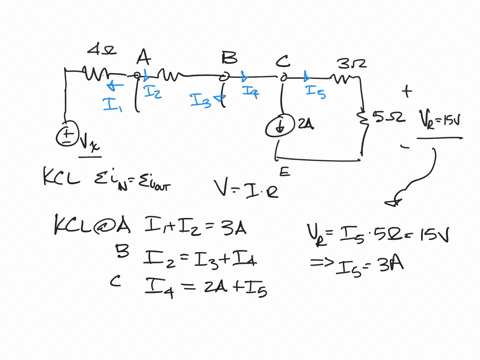 4Ω A B C 3Ω
I₁ I₂ I₃ I₄ I₅
+
2A 5Ω V_R=15V
± V_x
−
E
KCL Σi_IN=Σi_out V=I·R
KCL@A I₁+I₂=3A
B I₂=I₃+I₄
C I₄=2A+I₅
V_R=I₅·5Ω=15V
⟹I₅=3A